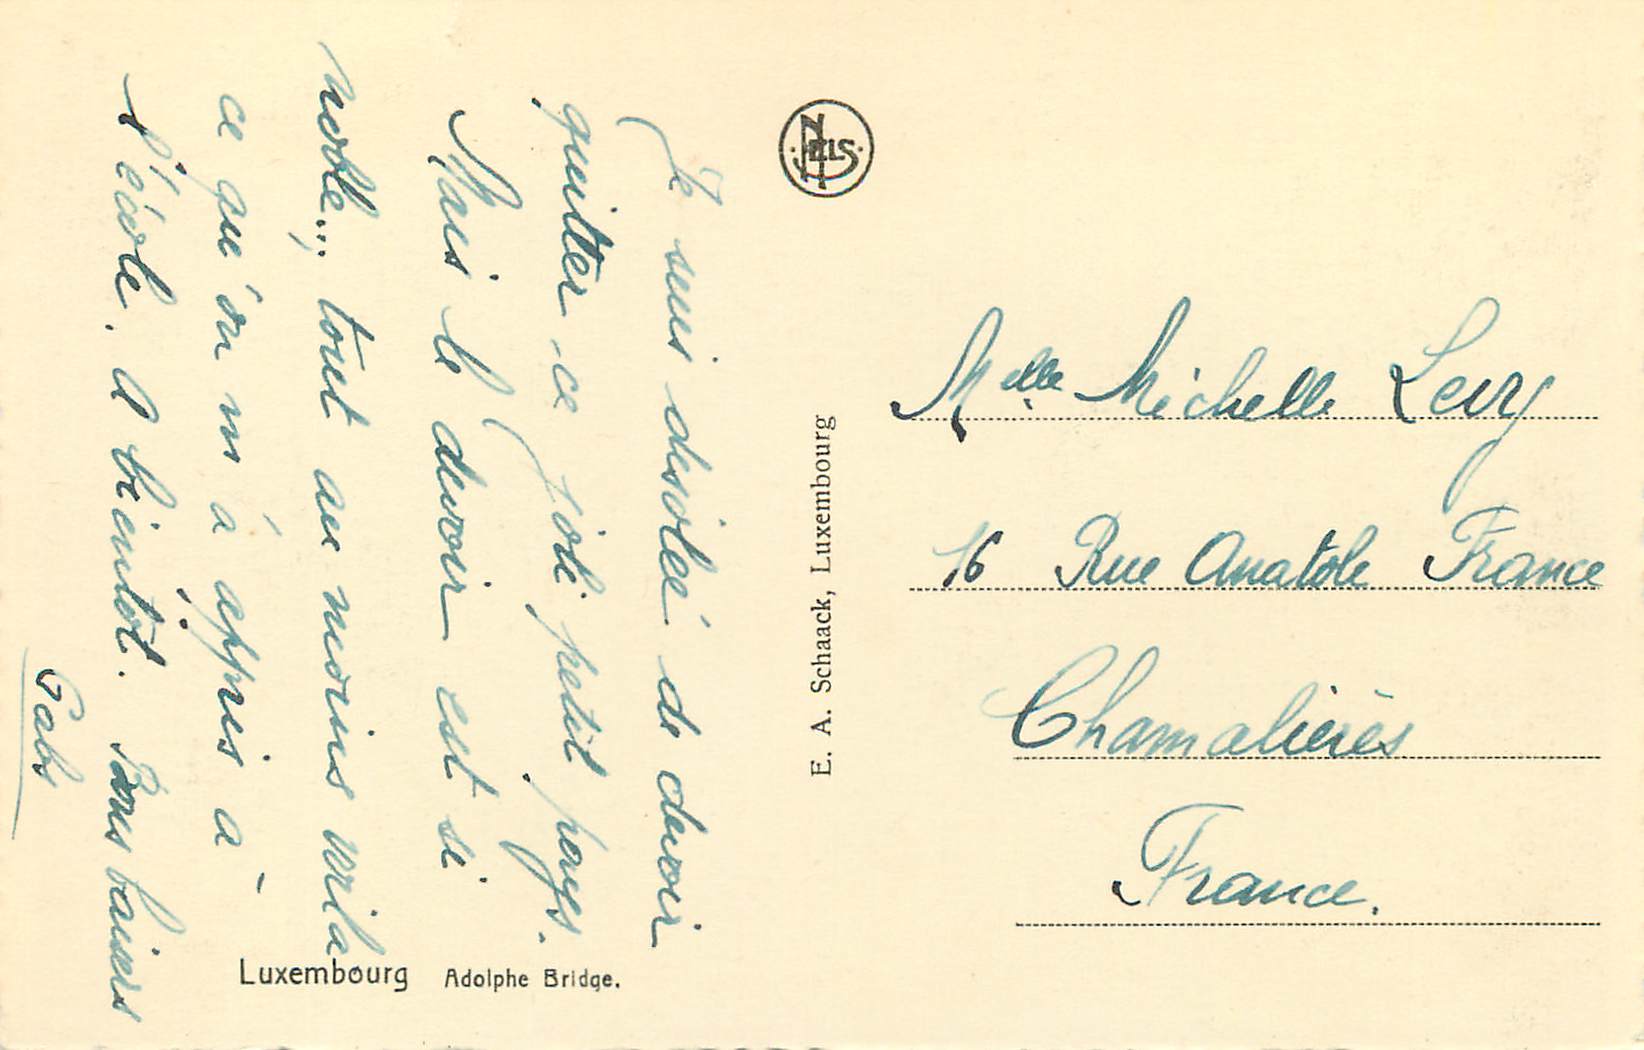 Je suis désolée de devoir
quitter ce joli petit pays.
Mais le devoir est si
noble... tout au moins voila
ce qu'on m'a appris à
l'école. A bientot. Bons baisers
Gabs
Luxembourg Adolphe Bridge.
NELS
E. A. Schaack, Luxembourg
Melle Michelle Levy
16 Rue Anatole France
Chamalières
France.